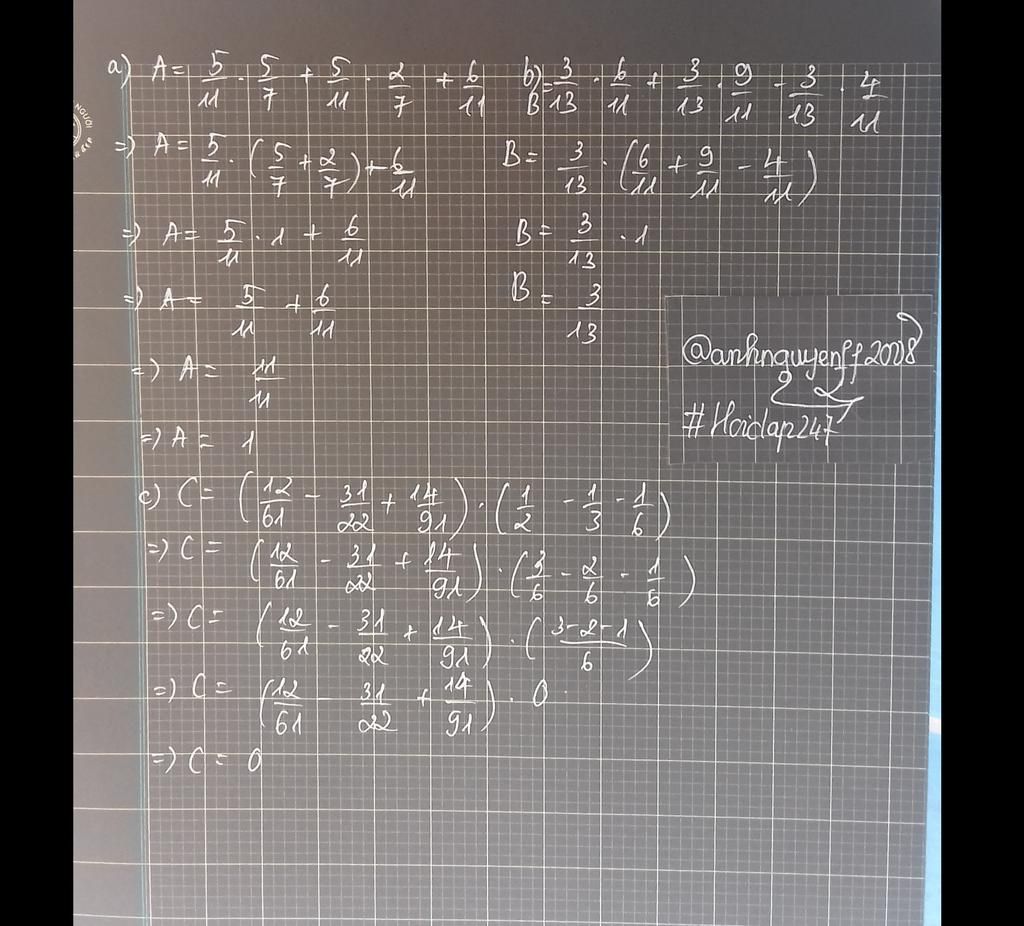 a) A = 5/11 . 5/7 + 5/11 . 2/7 + 6/11
=) A = 5/11 . (5/7 + 2/7) + 6/11
=) A = 5/11 . 1 + 6/11
=) A = 5/11 + 6/11
=) A = 11/11
=) A = 1
b) B = 3/13 . 6/11 + 3/13 . 9/11 - 3/13 . 4/11
B = 3/13 . (6/11 + 9/11 - 4/11)
B = 3/13 . 1
B = 3/13
@anhnguyenff2008
#Hoidap247
c) C = (12/61 - 31/22 + 14/91) . (1/2 - 1/3 - 1/6)
=) C = (12/61 - 31/22 + 14/91) . (3/6 - 2/6 - 1/6)
=) C = (12/61 - 31/22 + 14/91) . (3-2-1/6)
=) C = (12/61 - 31/22 + 14/91) . 0
=) C = 0
NGƯỜI